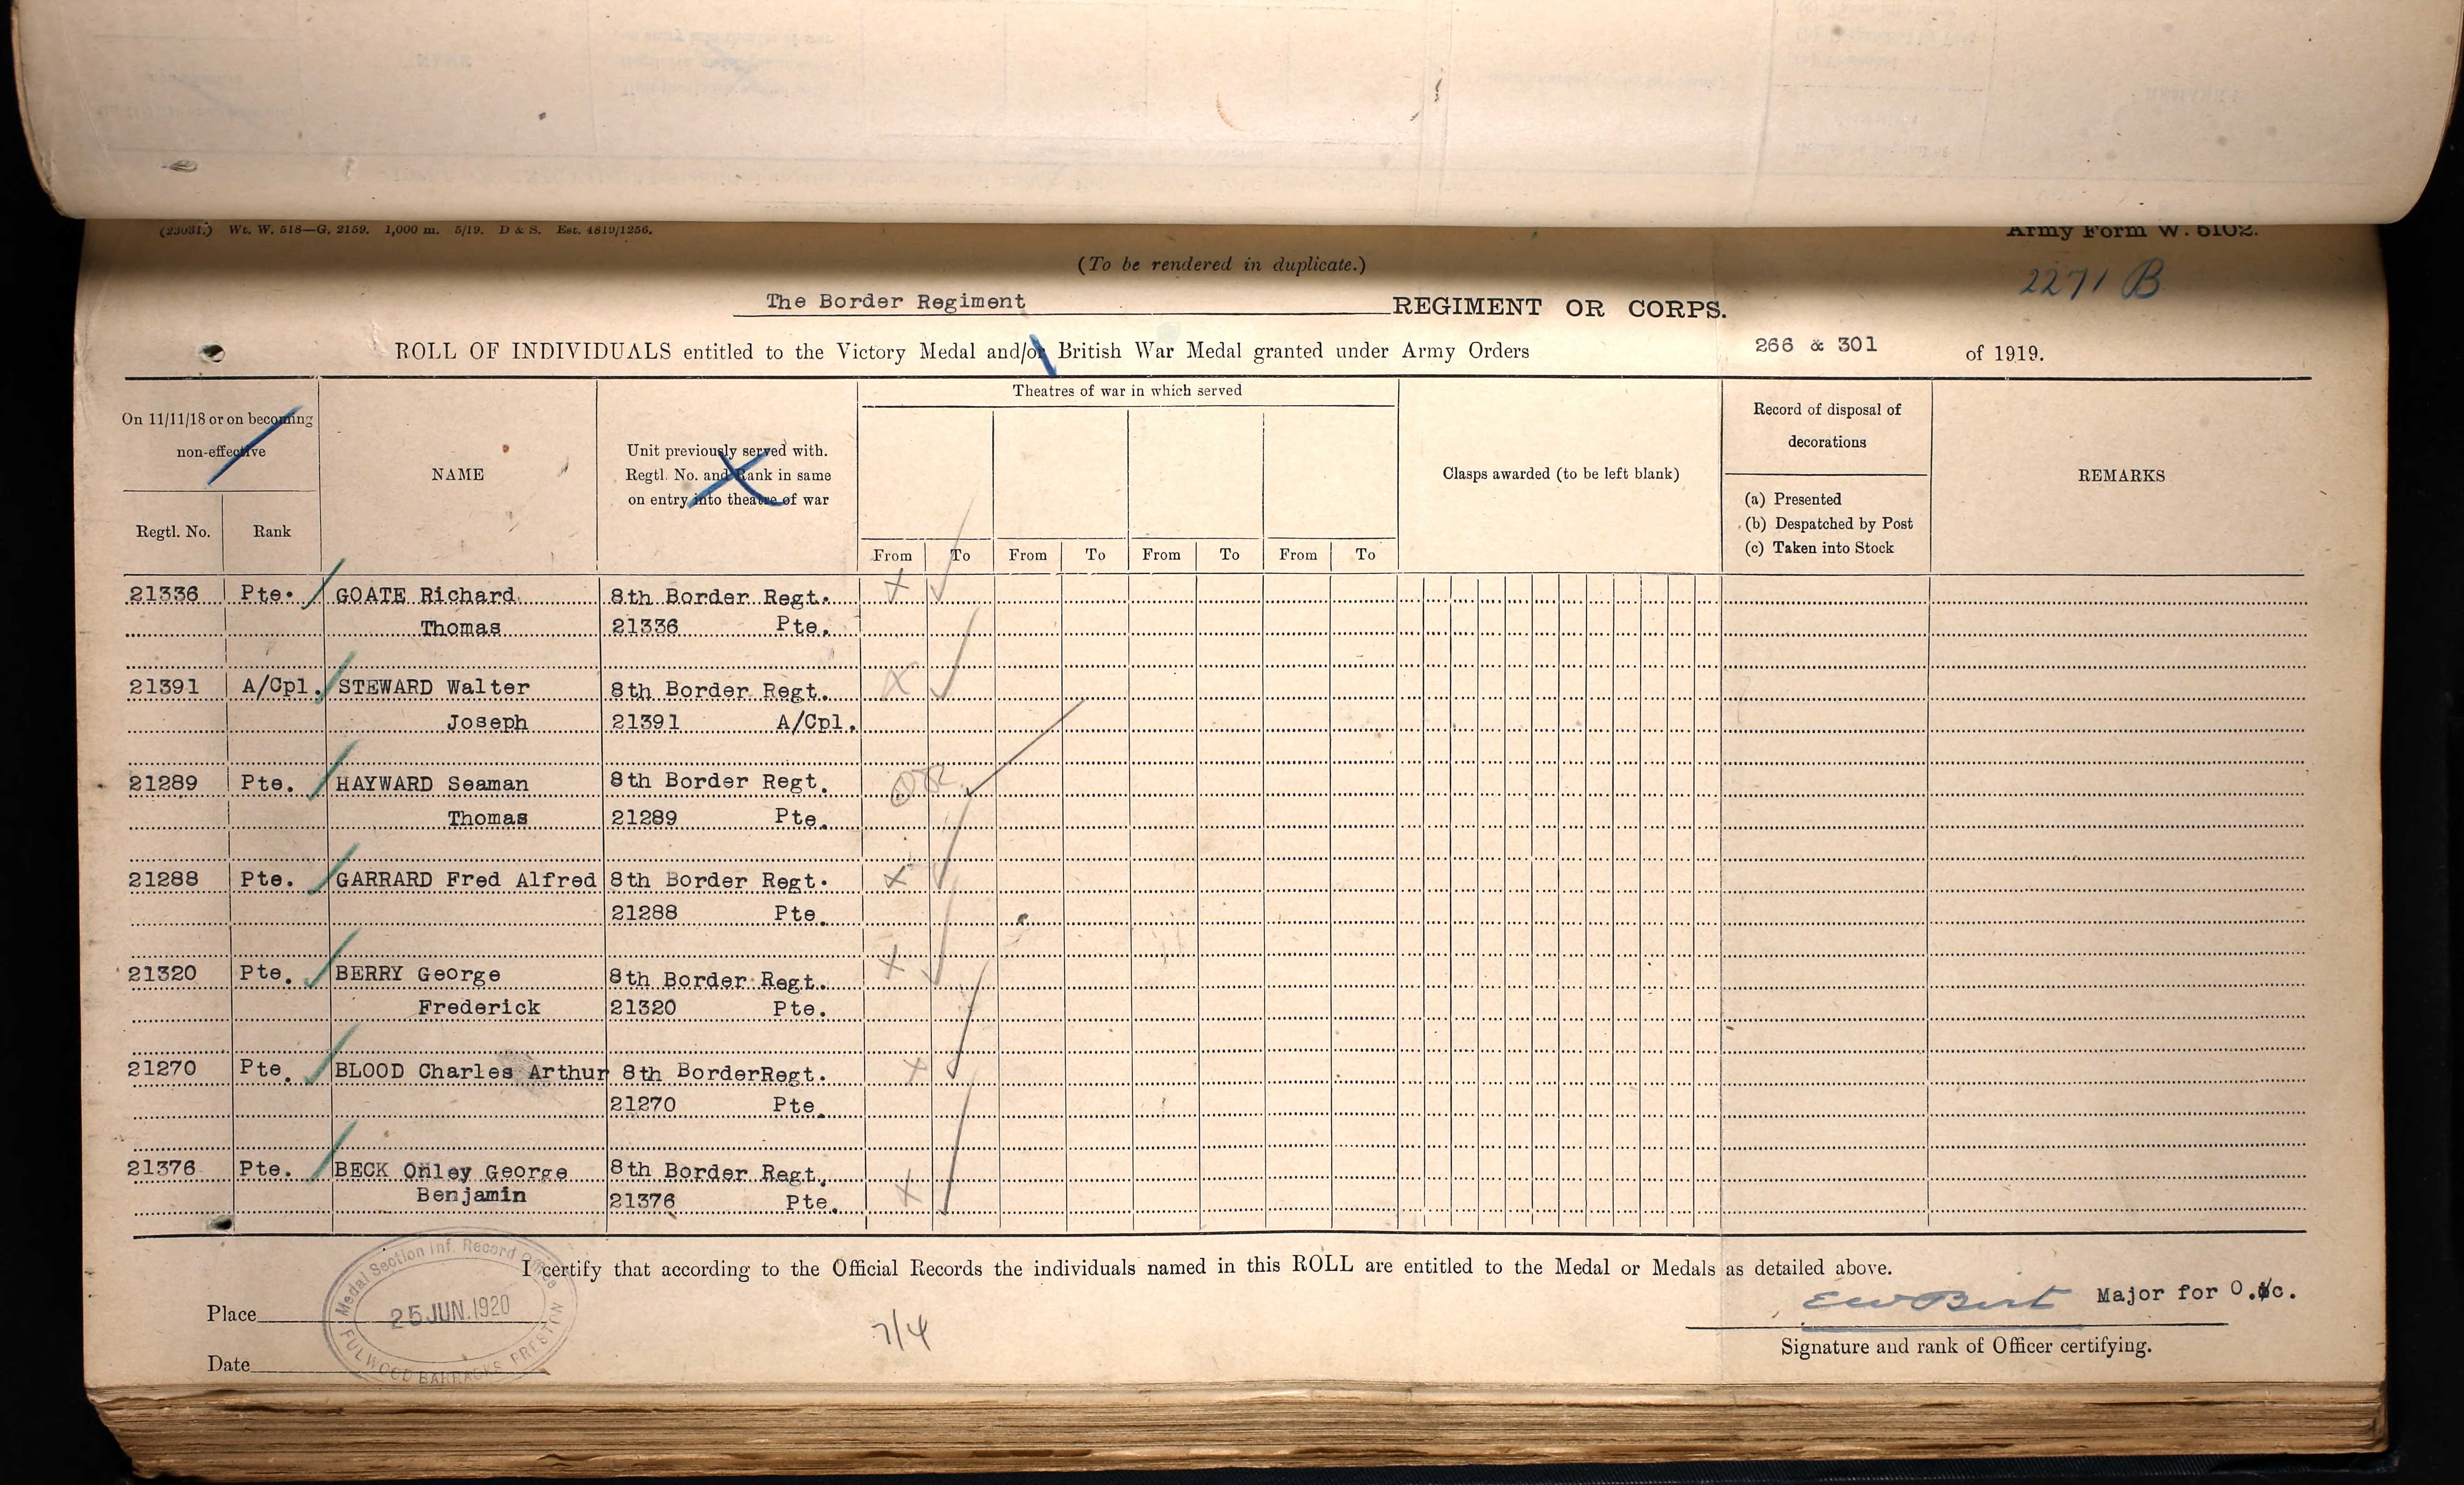 (23031.) Wt. W. 518—G. 2159. 1,000 m. 5/19. D & S. Est. 4819/1256.
Army Form W. 5102.
(To be rendered in duplicate.)
2271 B
The Border Regiment REGIMENT OR CORPS.
ROLL OF INDIVIDUALS entitled to the Victory Medal and/or British War Medal granted under Army Orders 266 & 301 of 1919.
On 11/11/18 or on becoming
non-effective
Regtl. No.
Rank
NAME
Unit previously served with.
Regtl. No. and Rank in same
on entry into theatre of war
Theatres of war in which served
From To From To From To From To
Clasps awarded (to be left blank)
Record of disposal of
decorations
(a) Presented
(b) Despatched by Post
(c) Taken into Stock
REMARKS
21336 Pte. GOATE Richard 8th Border Regt.
Thomas 21336 Pte.
21391 A/Cpl. STEWARD Walter 8th Border Regt.
Joseph 21391 A/Cpl.
21289 Pte. HAYWARD Seaman 8th Border Regt.
Thomas 21289 Pte.
21288 Pte. GARRARD Fred Alfred 8th Border Regt.
21288 Pte.
21320 Pte. BERRY George 8th Border Regt.
Frederick 21320 Pte.
21270 Pte. BLOOD Charles Arthur 8th BorderRegt.
21270 Pte.
21376 Pte. BECK Onley George 8th Border Regt.
Benjamin 21376 Pte.
I certify that according to the Official Records the individuals named in this ROLL are entitled to the Medal or Medals as detailed above.
Medal Section Inf. Record Office
25 JUN. 1920
FULWOOD BARRACKS PRESTON
Place
Date
7/4
Major for O. i/c.
Signature and rank of Officer certifying.